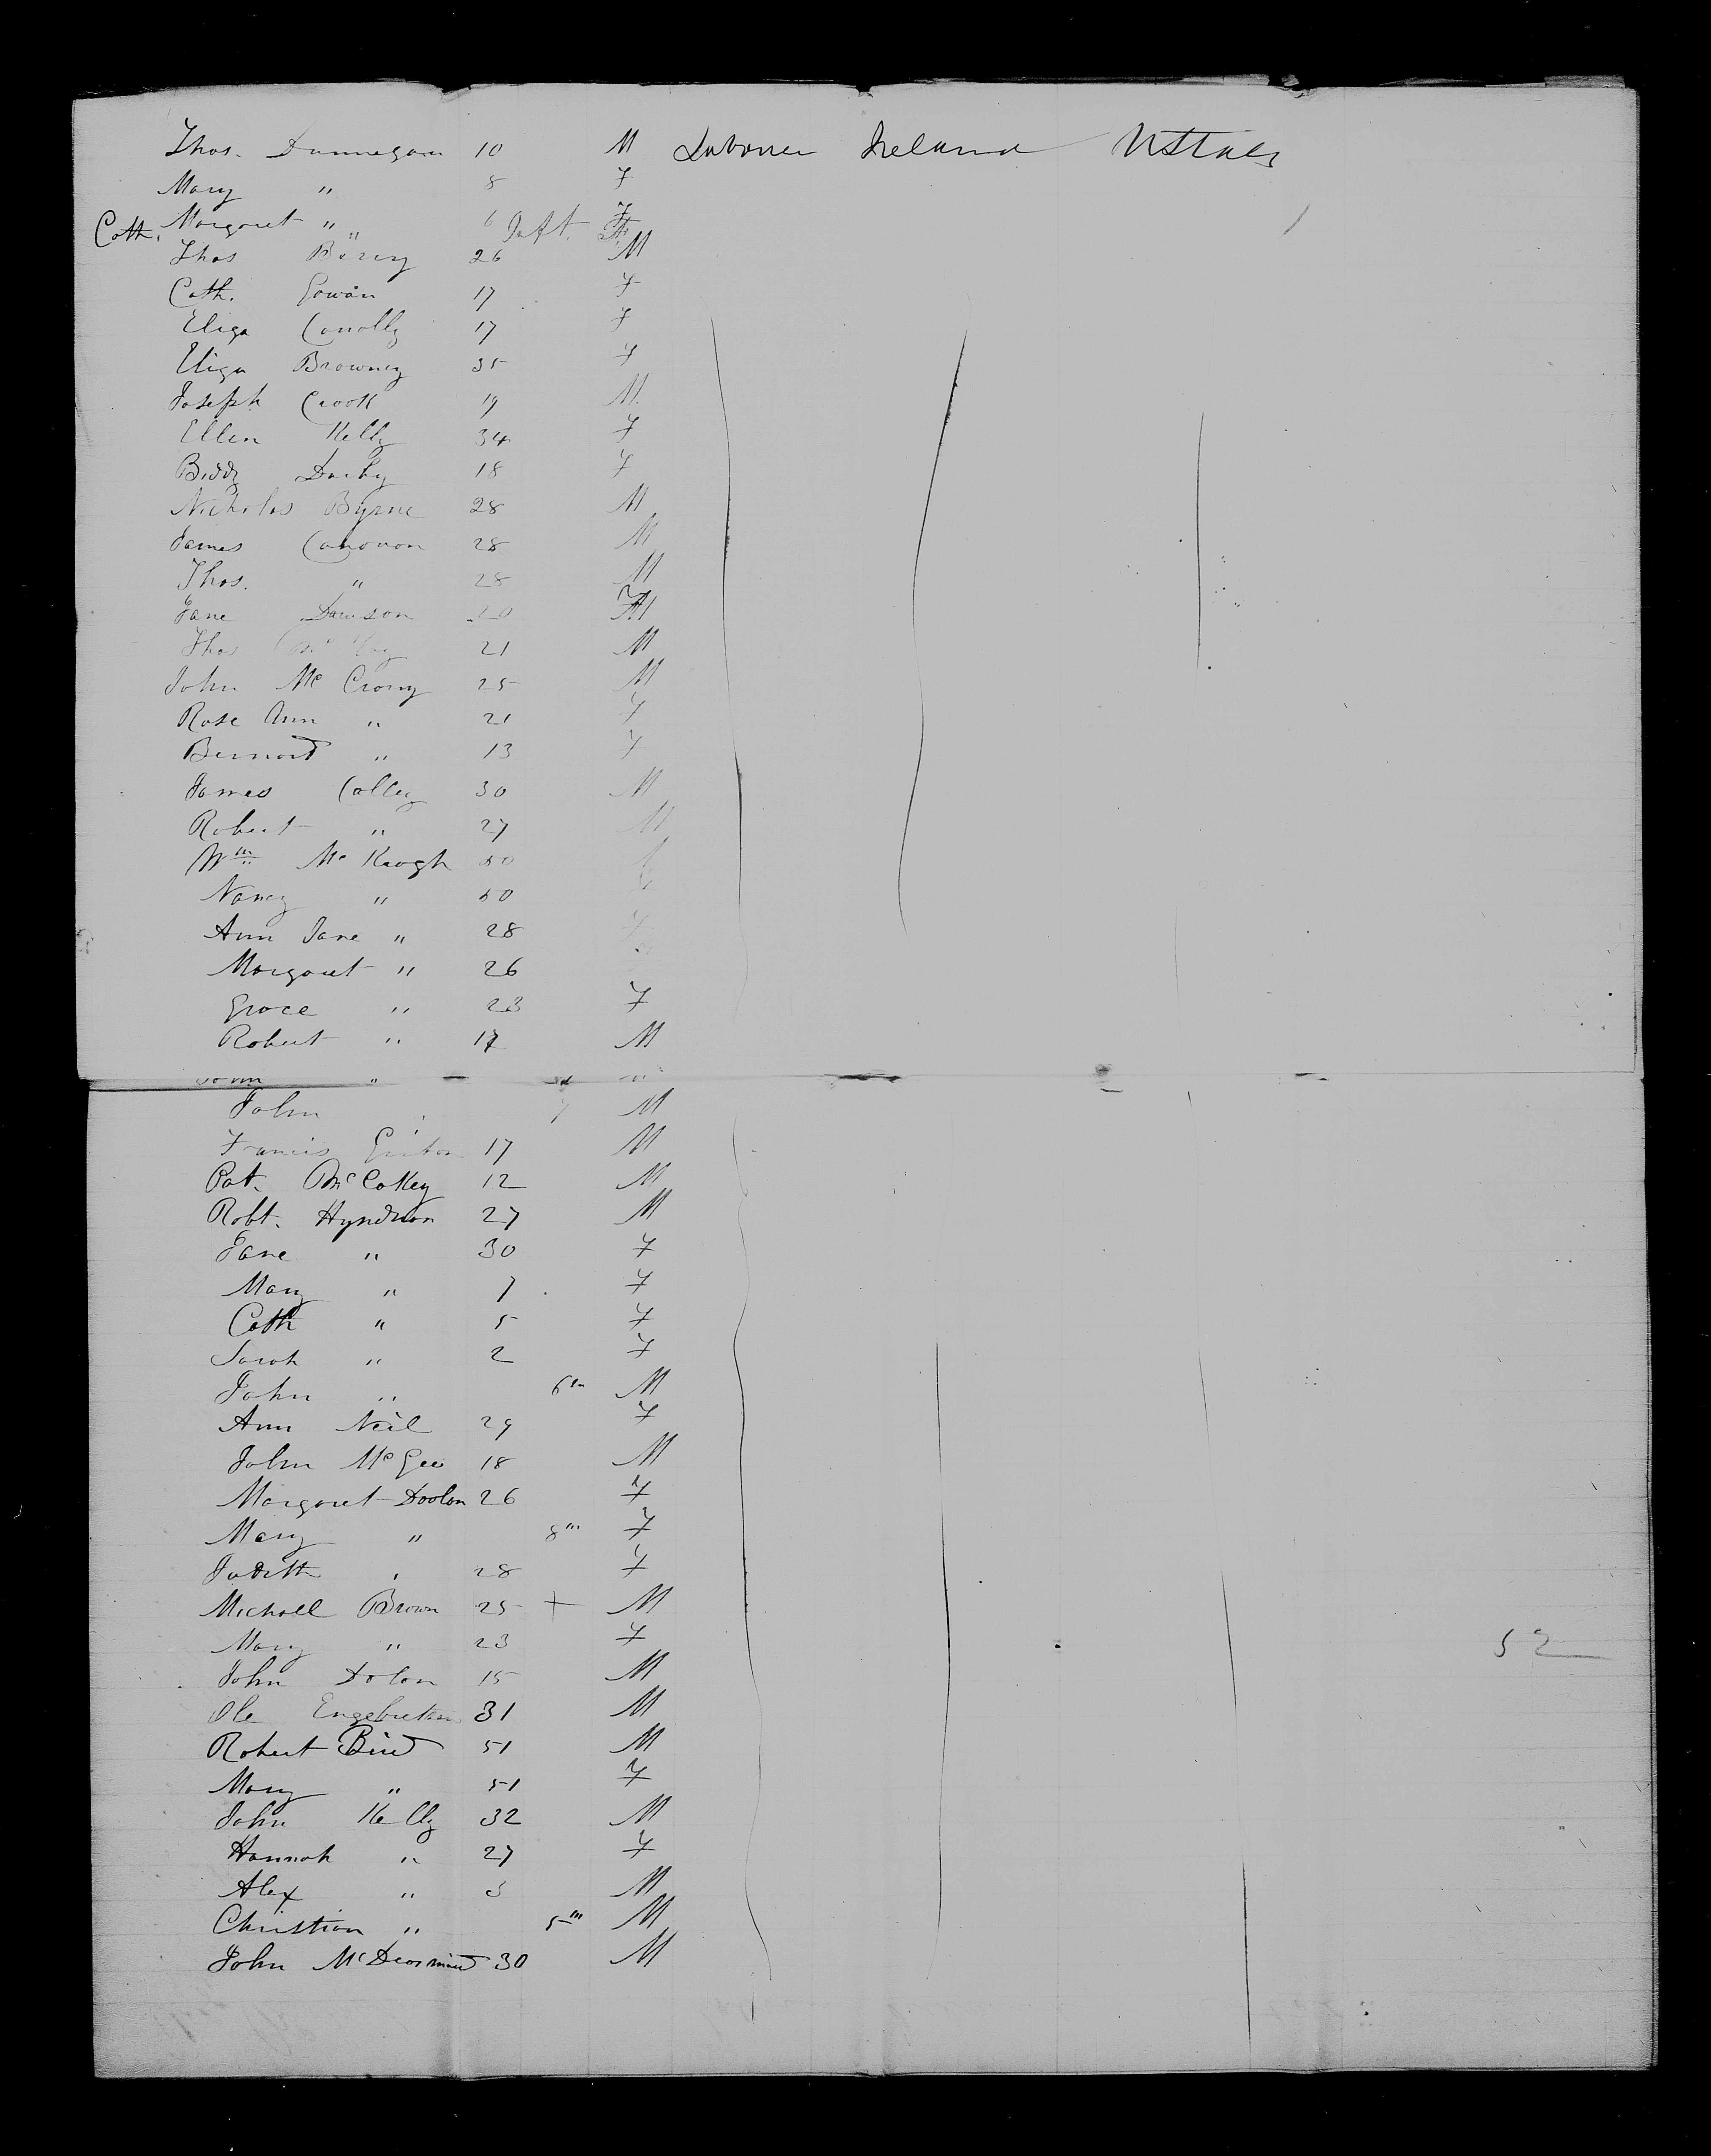 Thos. Dunnegan 10 M Laborer Ireland UStates
Mary " 8 F
Margaret " 6 F
Cath. " Inft. F
Thos Berry 26 M
Cath. Gowan 17 F
Eliza Conolly 17 F
Eliza Browney 35 F
Joseph Crook 19 M.
Ellen Kelly 34 F
Biddy Darby 18 F
Nicholas Byrne 28 M
James Canovan 28 M
Thos. " 28 M
Jane Dawson 20 F
Thos Mc 21 M
John Mc Crory 25 M
Rose Ann " 21 F
Bernard " 13 F
James Colley 30 M
Robert " 27 M
Wm Mc Keogh 50
Nancy " 50
Ann Jane " 28 F
Margaret " 26
Grace " 23 F
Robert " 17 M
John "
John M
Francis 17 M
Pat. McCokey 12 M
Robt. Hyndman 27 M
Jane " 30 F
Mary " 7 F
Cath " 5 F
Sarah " 2 F
John " 6m M
Ann Neil 29 F
John McGee 18 M
Margaret Doolan 26 F
Mary " 8m F
Judith " 28 F
Michall Brown 25 + M
Mary " 23 F
52
John Dolan 15 M
Ole Engebretsen 31 M
Robert Bird 51 M
Mary " 51 F
John Kelly 32 M
Hannah " 27 F
Alex " 3 M
Christian " 5m M
John McDearmid 30 M